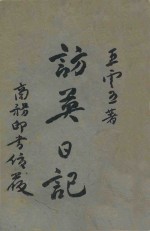 王雲五著
訪英日記
商務印書館發